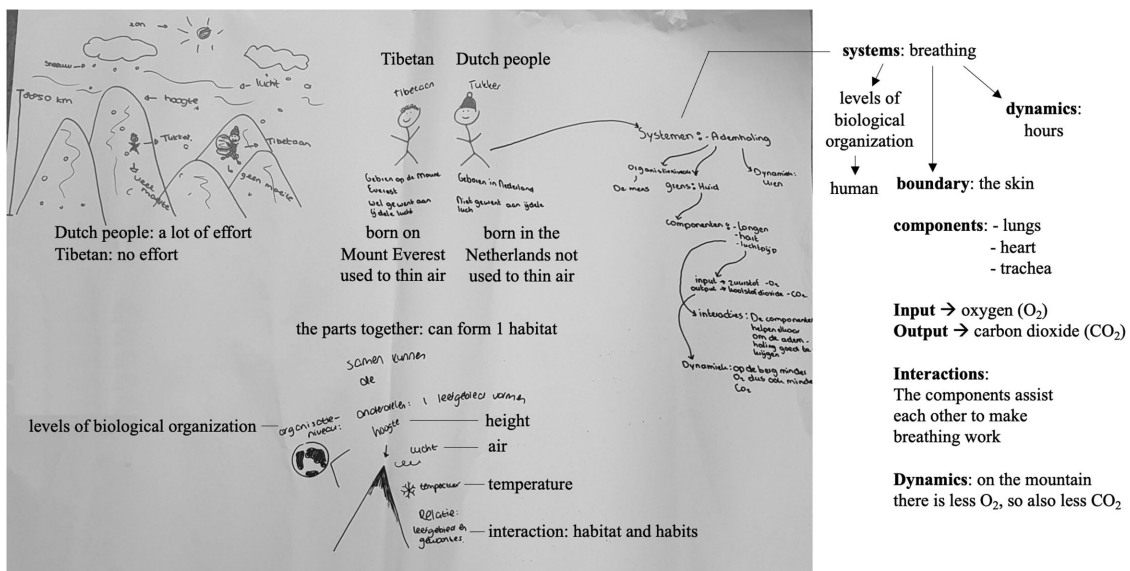 zon →
sneeuw →
lucht
hoogte
8050 km
Tukker
Tibetaan
veel
moeite
geen moeite
Dutch people: a lot of effort
Tibetan: no effort
Tibetan
Dutch people
Tibetaan
Tukker
Geboren op de Moune
Everest
wel gewent aan
ijdele lucht
Geboren in Nederland
Niet gewent aan ijdele
luch
born on
Mount Everest
used to thin air
born in the
Netherlands not
used to thin air
Systemen: - Ademhaling
Organisatieniveau:
De mens
grens: Huid
Dynamiek:
uren
componenten: - longen
- hart
- luchtpijp
input → zuurstof - O₂
output → koolstofdioxide - CO₂
interacties: De componenten
helpen elkaar
om de adem-
haling goed te
krijgen
Dynamiek: op de berg minder
O₂ dus ook minder
CO₂
the parts together: can form 1 habitat
samen kunnen
de
onderdelen: 1 leefgebied vormen
levels of biological organization
organisatie-
niveau:
hoogte
height
lucht
air
temperatuur
temperature
Relatie:
leefgebied en
gewoontes
interaction: habitat and habits
systems: breathing
levels of
biological
organization
human
dynamics:
hours
boundary: the skin
components: - lungs
- heart
- trachea
Input → oxygen (O₂)
Output → carbon dioxide (CO₂)
Interactions:
The components assist
each other to make
breathing work
Dynamics: on the mountain
there is less O₂, so also less CO₂